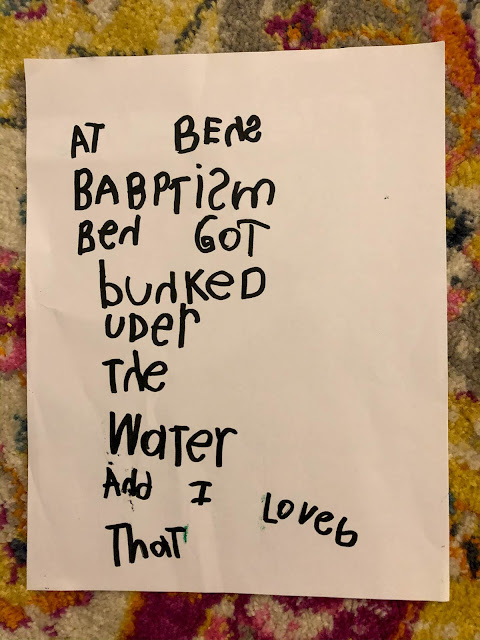 AT BENS
BABPTiSm
Ben GOT
bunKED
UDer
The
Water
And I Loveb
That